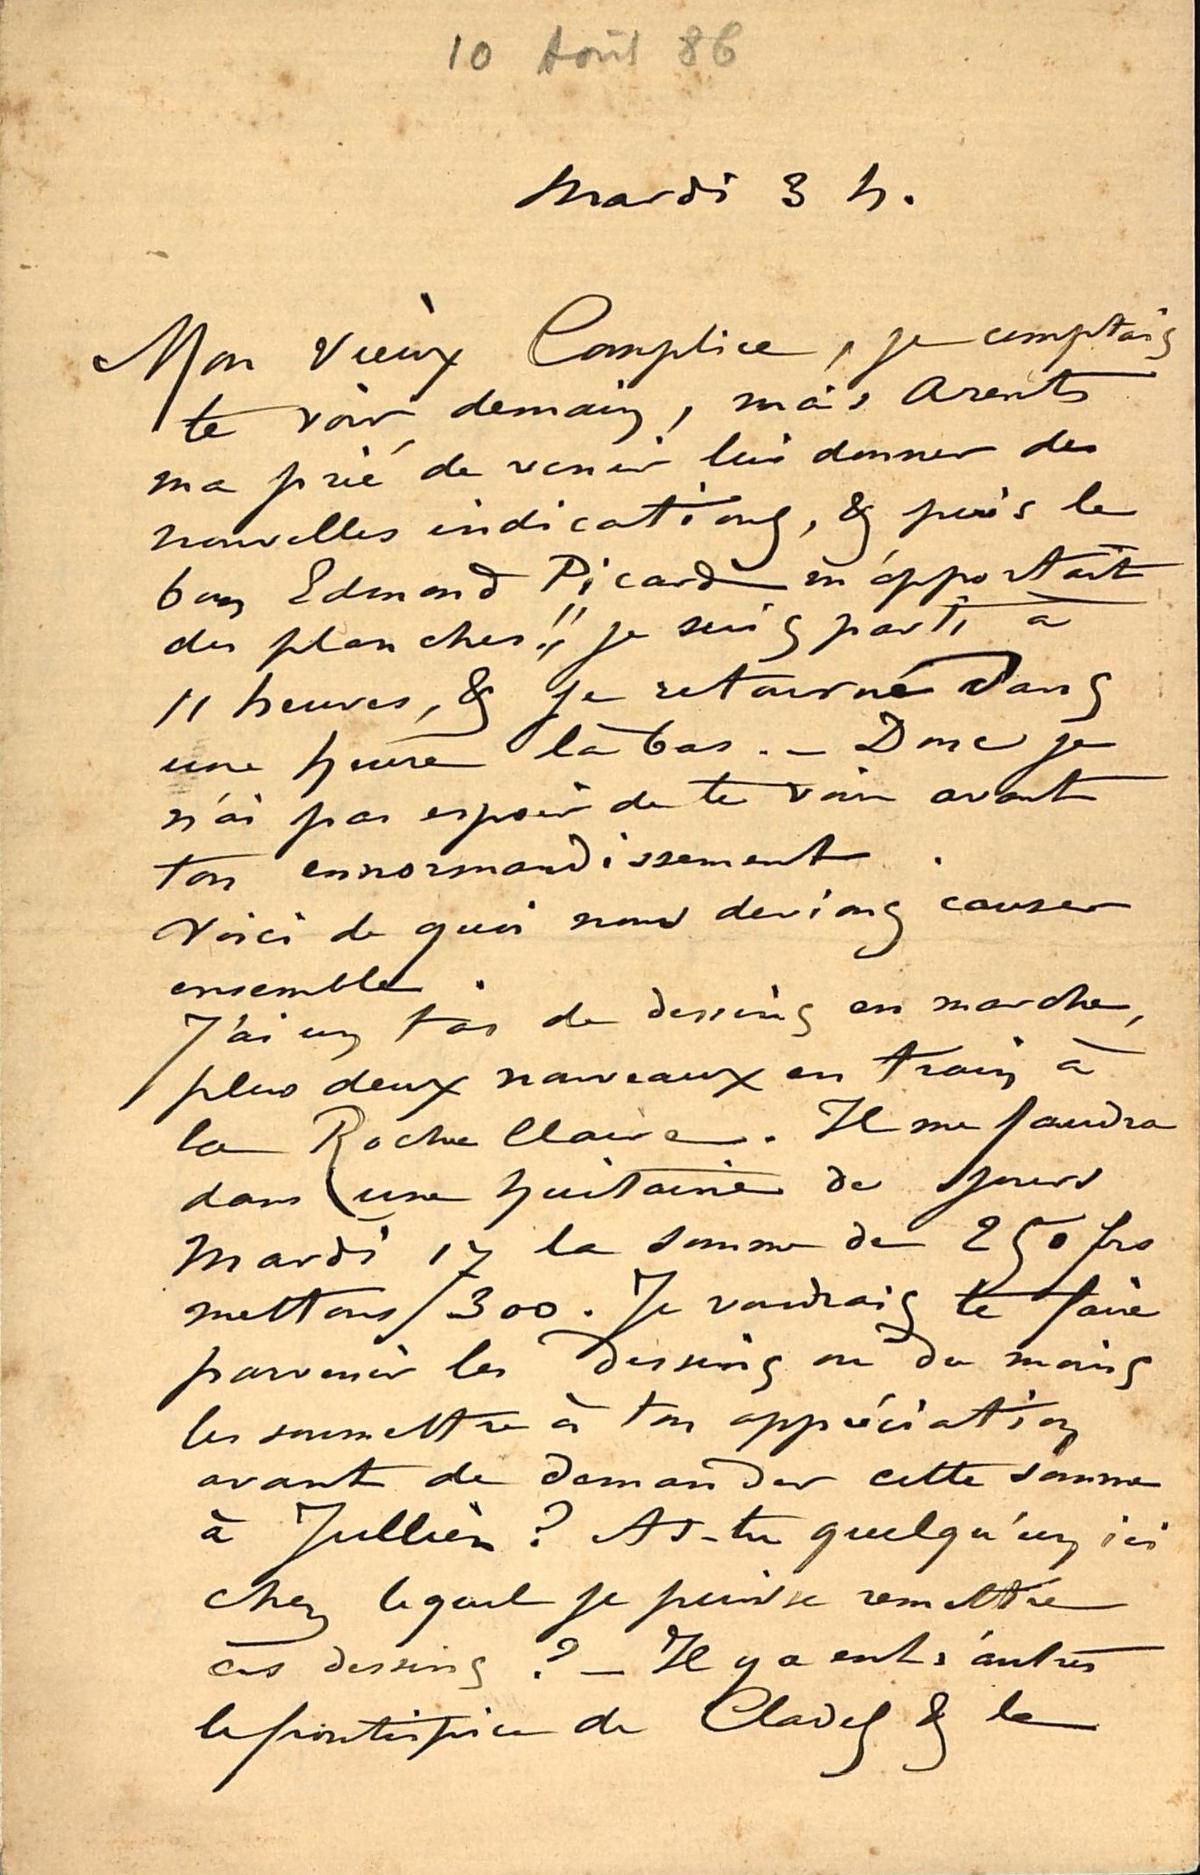 10 Août 86
Mardi 3 h.
Mon vieux Complice, je comptais
te voir demain, mais Arents
m'a prié de venir lui donner des
nouvelles indications, & puis le
bon Edmond Picard m'apportait
des planches!! je suis parti à
11 heures, & je retourne dans
une heure là bas. — Donc je
n'ai pas espoir de te voir avant
ton ennormandissement.
Voici de quoi nous devions causer
ensemble.
J'ai un tas de dessins en marche,
plus deux nouveaux en train à
la Roche Claire. Il me faudra
dans une huitaine de jours
Mardi 17 la somme de 250 frs
mettons 300. Je voudrais te faire
parvenir les dessins ou du moins
les soumettre à ton appréciation
avant de demander cette somme
à Jullien? As-tu quelqu'un ici
chez lequel je puisse remettre
ces dessins? — Il y a entr'autres
le frontispice de Cladel & le